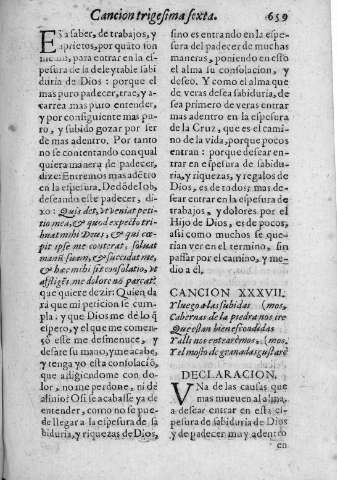 Cancion trigesima sexta. 659
Es a saber, de trabajos, y
aprietos, por quãto son
medio, para entrar en la es-
pesura de la deleytable sabi
duria de Dios : porque el
mas puro padecer, trae, y a-
carrea mas puro entender,
y por consiguiente mas pu-
ro, y subido gozar por ser
de mas adentro. Por tanto
no se contentando con qual
quiera manera de padecer,
dize: Entremos mas adẽtro
en la espesura. De dõde Iob,
deseando este padecer, di-
xo: Quis det, vt veniat peti-
tio mea, & quod expecto tri-
buat mihi Deus, & qui cœ-
pit ipse me conterat, soluat
manũ suam, & succidat me,
& hæc mihi sit consolatio, vt
affligẽs me dolore nõ parcat?
que quiere dezir: Quien da
rà que mi peticion se cum-
pla : y que Dios me dè lo q̃
espero, y el que me comen-
çò esse me desmenuce, y
desate su mano, y me acabe,
y tenga yo esta consolaciõ,
que afligiendome con do-
lor, no me perdone, ni dè
aliuio? O si se acabasse ya de
entender, como no se pue-
de llegar a la espesura de sa
biduria, y riquezas de Dios,
sino es entrando en la espe-
sura del padecer de muchas
maneras, poniendo en esso
el alma su consolacion, y
deseo. Y como el alma que
de veras desea sabiduria, de
sea primero de veras entrar
mas adentro en la espesura
de la Cruz, que es el cami-
no de la vida, porque pocos
entran : porque desear en-
trar en espesura de sabidu-
ria, y riquezas, y regalos de
Dios, es de todos; mas de-
sear entrar en la espesura de
trabajos, y dolores por el
Hijo de Dios, es de pocos,
assi como muchos se que-
rian ver en el termino, sin
passar por el camino, y me-
dio a èl.
CANCION XXXVII.
Y luego a las subidas (mos,
Cabernas de la piedra nos ire
Que estan bien escondidas
Y alli nos entrarèmos, (mos.
Y el mosto de granadas gustarè
DECLARACION.
VNa de las causas que
mas mueuen al alma,
a desear entrar en esta es-
pesura de sabiduria de Dios
y de padecer muy adentro
en